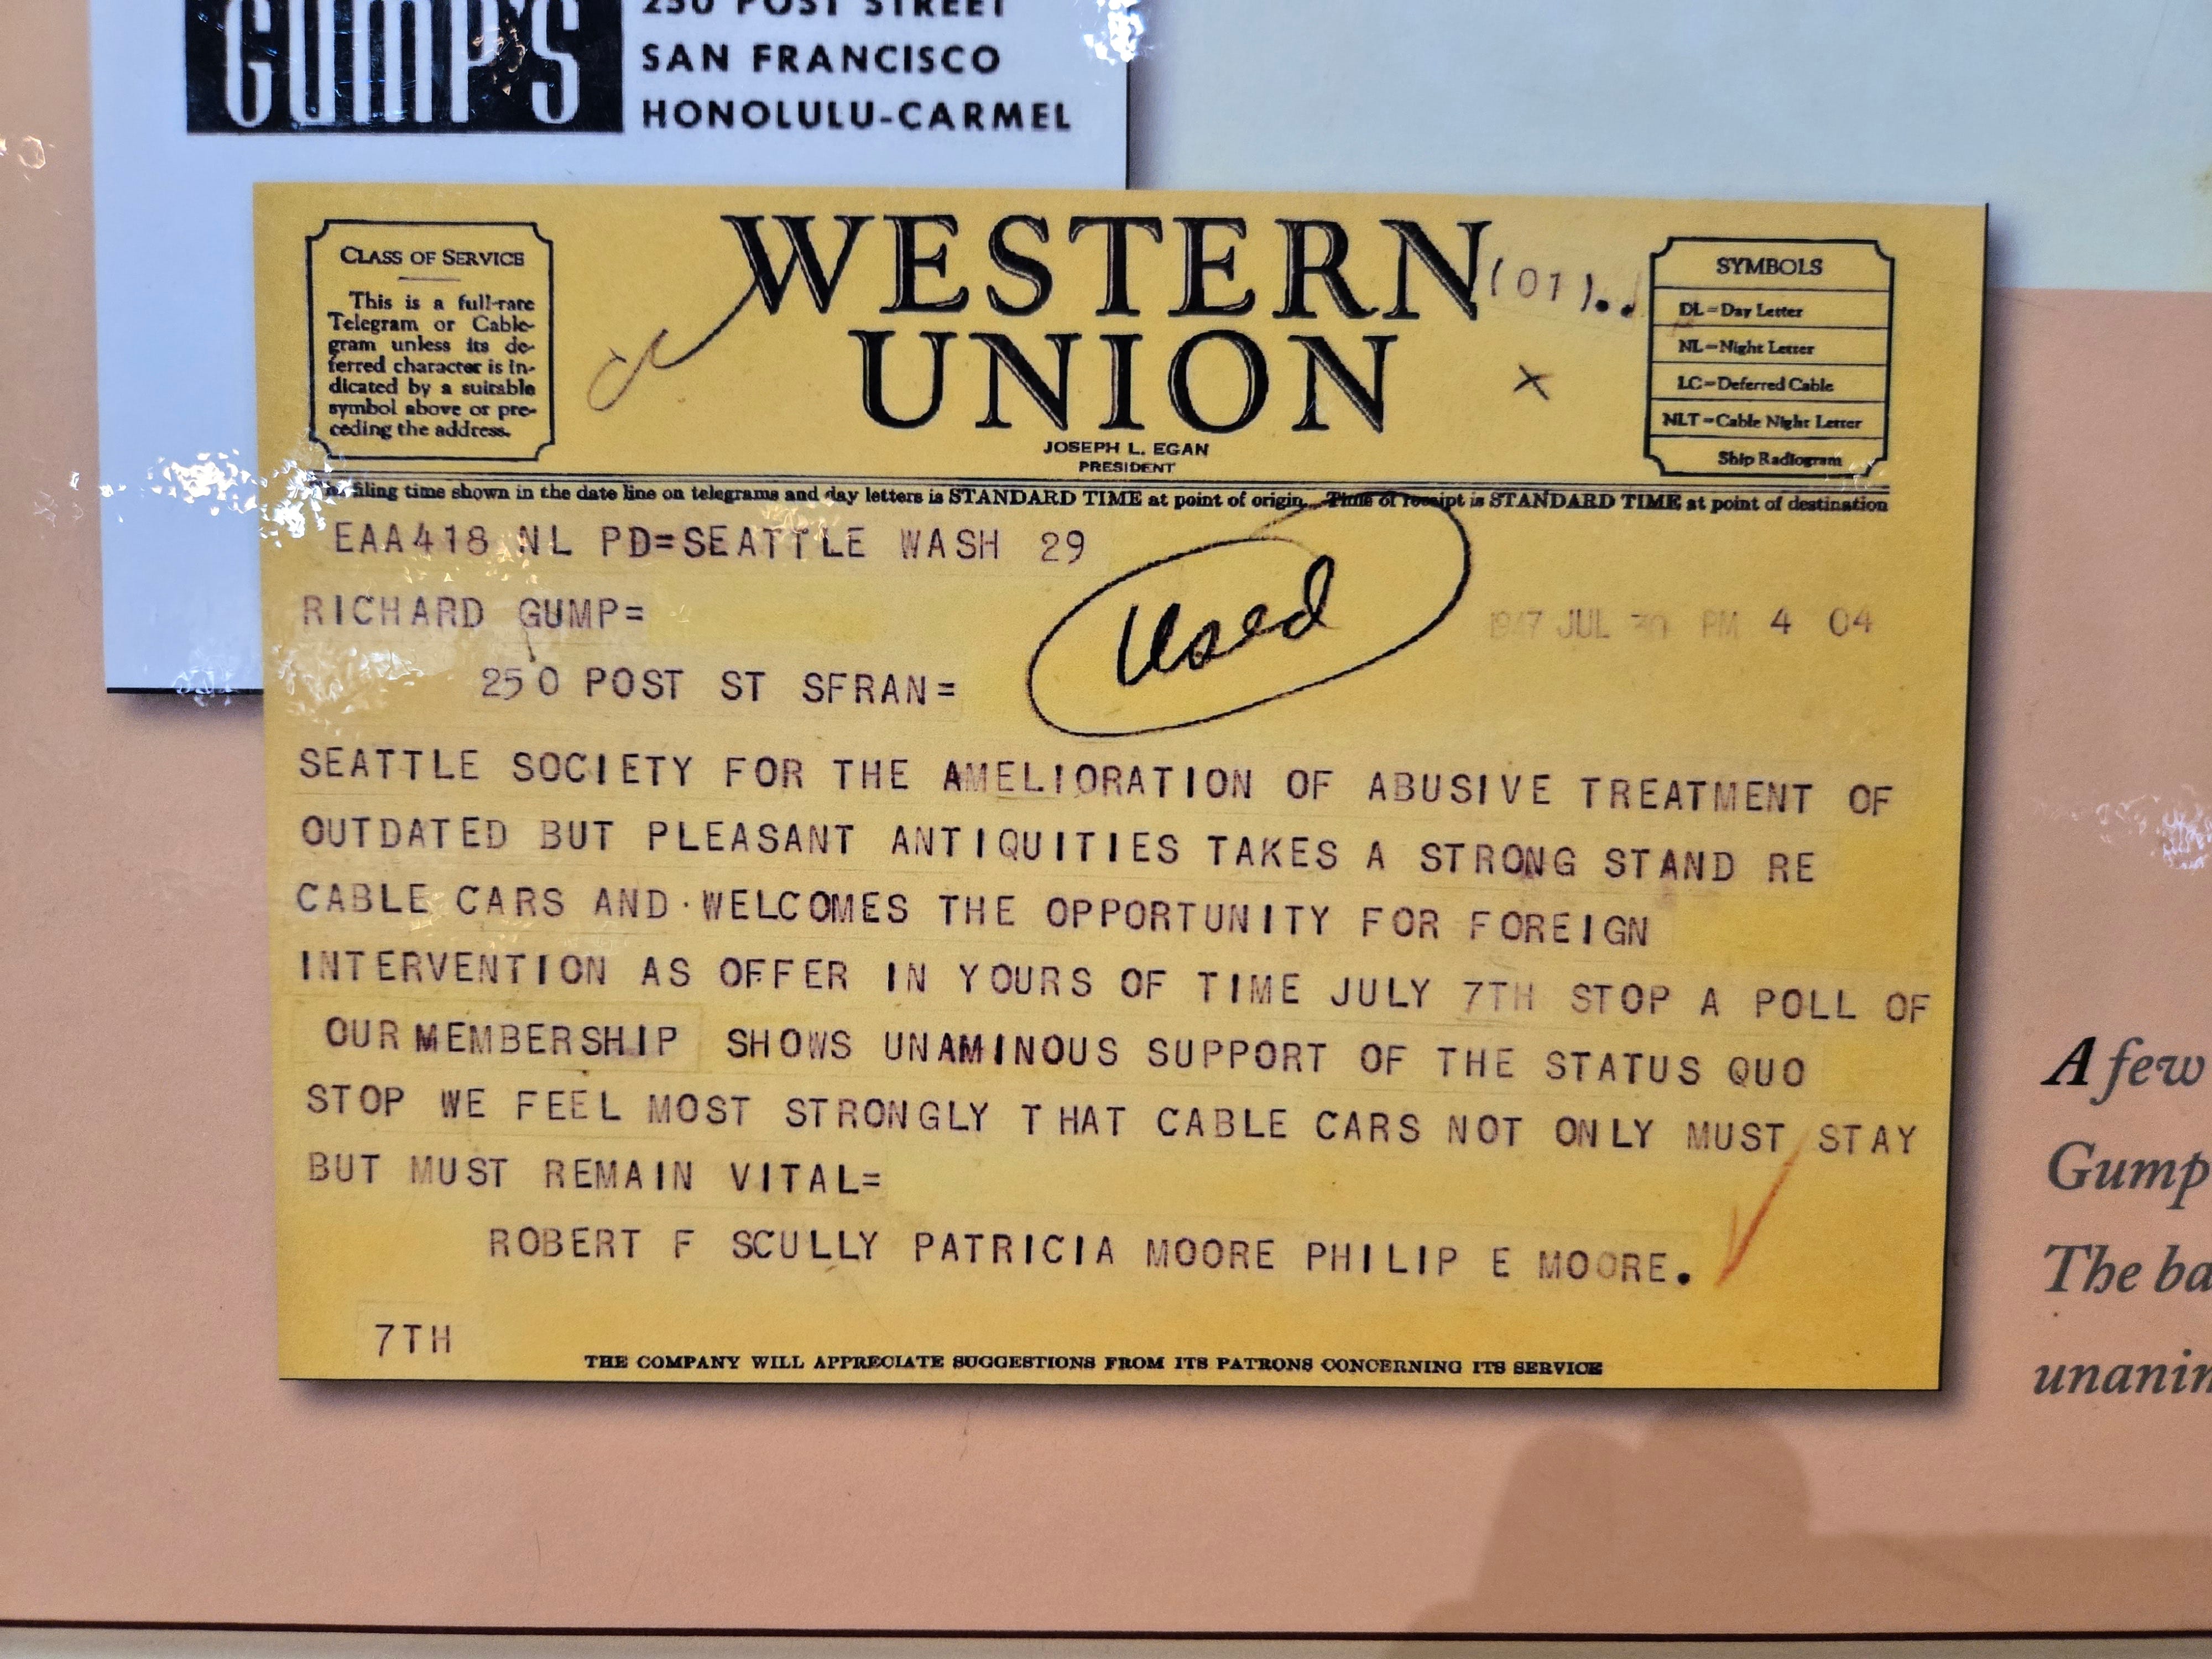 GUMP'S
250 POST STREET
SAN FRANCISCO
HONOLULU-CARMEL
CLASS OF SERVICE
This is a full-rate
Telegram or Cable-
gram unless its de-
ferred character is in-
dicated by a suitable
symbol above or pre-
ceding the address.
WESTERN
UNION
(01)..
JOSEPH L. EGAN
PRESIDENT
SYMBOLS
DL=Day Letter
NL=Night Letter
LC=Deferred Cable
NLT=Cable Night Letter
Ship Radiogram
The filing time shown in the date line on telegrams and day letters is STANDARD TIME at point of origin. Time of receipt is STANDARD TIME at point of destination
EAA418 NL PD=SEATTLE WASH 29
RICHARD GUMP=
1947 JUL 30 PM 4 04
Used
250 POST ST SFRAN=
SEATTLE SOCIETY FOR THE AMELIORATION OF ABUSIVE TREATMENT OF
OUTDATED BUT PLEASANT ANTIQUITIES TAKES A STRONG STAND RE
CABLE CARS AND WELCOMES THE OPPORTUNITY FOR FOREIGN
INTERVENTION AS OFFER IN YOURS OF TIME JULY 7TH STOP A POLL OF
OUR MEMBERSHIP SHOWS UNAMINOUS SUPPORT OF THE STATUS QUO
STOP WE FEEL MOST STRONGLY THAT CABLE CARS NOT ONLY MUST STAY
BUT MUST REMAIN VITAL=
ROBERT F SCULLY PATRICIA MOORE PHILIP E MOORE.
7TH
THE COMPANY WILL APPRECIATE SUGGESTIONS FROM ITS PATRONS CONCERNING ITS SERVICE
A few
Gump
The ba
unanim